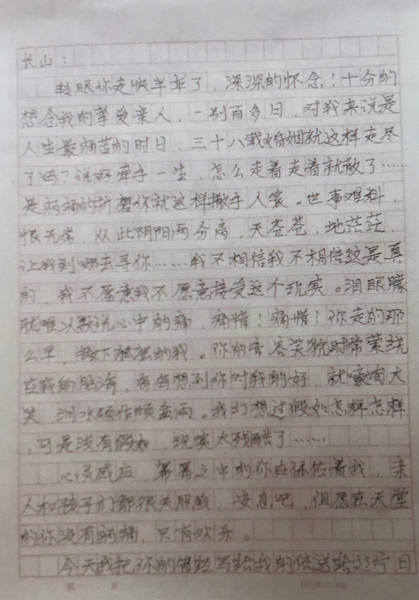 长山：
转眼你走快半年了，深深的怀念！十分的
想念我的挚爱亲人，一别百多日，对我来说是
人生最痛苦的时日，三十八载婚姻就这样走尽
了吗？说好牵手一生，怎么走着走着就散了……
是病痛的折磨你就这样撒手人寰。世事难料，
恨无常，从此阴阳两分离，天苍苍，地茫茫，
让我到哪去寻你……我不相信我不相信这是真
的，我不愿意我不愿意接受这个现实。泪眼朦
胧难以数说心中的痛，痛惜！痛惜！你走的那
么早，撇下孤单的我。你的音容笑貌时常萦绕
在我的脑海，每每想到你对我的好，就嚎啕大
哭，泪水顿作倾盆雨。我幻想过假如怎样怎样
，可是没有假如，现实太残酷了……
心灵感应，冥冥之中的你应保佑着我，亲
人和孩子们都很关照我，没事吧，但愿在天堂
的你没有病痛，只有欢乐。
今天我把 你的 写给我的信送给